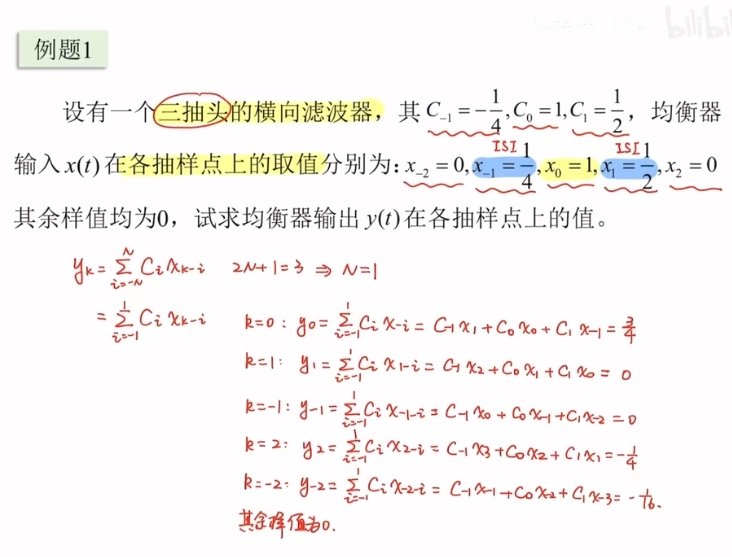 bilibili
例题1
设有一个三抽头的横向滤波器，其 C₋₁ = -1/4, C₀ = 1, C₁ = 1/2，均衡器
ISI ISI
输入x(t)在各抽样点上的取值分别为：x₋₂ = 0, x₋₁ = 1/4, x₀ = 1, x₁ = 1/2, x₂ = 0
其余样值均为0，试求均衡器输出y(t)在各抽样点上的值。
yₖ = Σ_{i=-N}^{N} Cᵢ xₖ₋ᵢ 2N+1=3 ⇒ N=1
= Σ_{i=-1}^{1} Cᵢ xₖ₋ᵢ
k=0: y₀ = Σ_{i=-1}^{1} Cᵢ x₋ᵢ = C₋₁x₁ + C₀x₀ + C₁x₋₁ = 3/4
k=1: y₁ = Σ_{i=-1}^{1} Cᵢ x₁₋ᵢ = C₋₁x₂ + C₀x₁ + C₁x₀ = 0
k=-1: y₋₁ = Σ_{i=-1}^{1} Cᵢ x₋₁₋ᵢ = C₋₁x₀ + C₀x₋₁ + C₁x₋₂ = 0
k=2: y₂ = Σ_{i=-1}^{1} Cᵢ x₂₋ᵢ = C₋₁x₃ + C₀x₂ + C₁x₁ = -1/4
k=-2: y₋₂ = Σ_{i=-1}^{1} Cᵢ x₋₂₋ᵢ = C₋₁x₋₁ + C₀x₋₂ + C₁x₋₃ = -1/16.
其余样值为0.